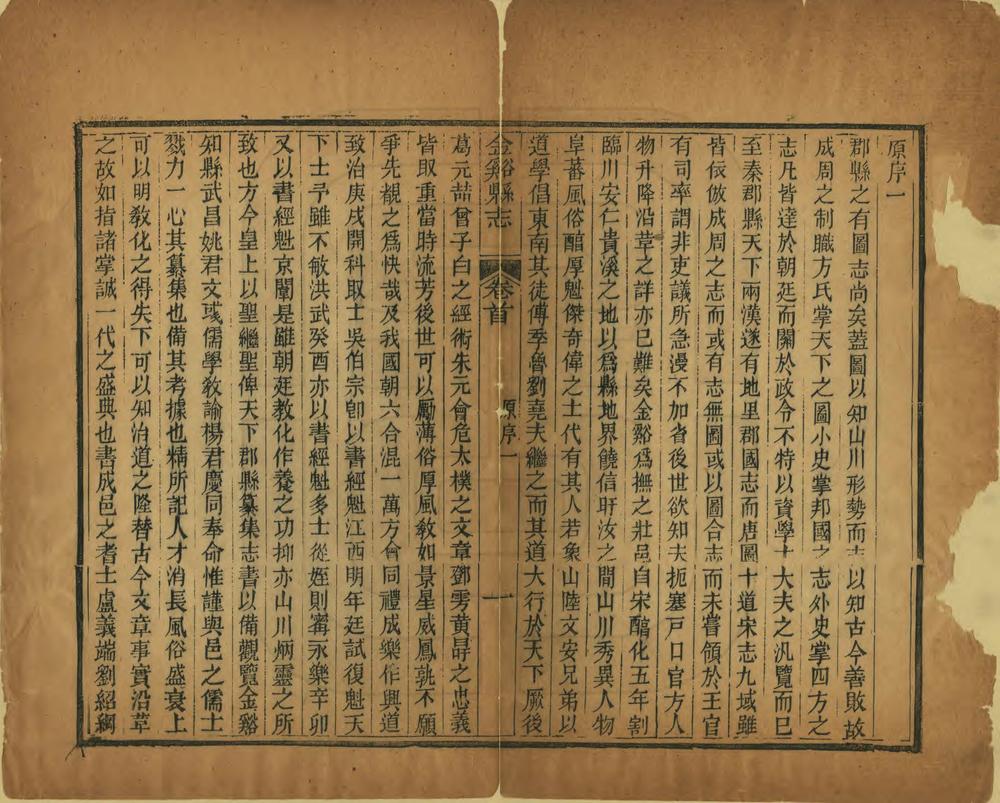 原序一
郡縣之有圖志尚矣蓋圖以知山川形勢而志以知古今善敗故
成周之制職方氏掌天下之圖小史掌邦國之志外史掌四方之
志凡皆達於朝廷而關於政令不特以資學士大夫之汎覽而已
至秦郡縣天下兩漢遂有地里郡國志而唐圖十道宋志九域雖
皆依倣成周之志而或有志無圖或以圖合志而未嘗領於王官
有司率謂非吏議所急漫不加省後世欲知夫扼塞戸口官方人
物升降沿革之詳亦已難矣金谿爲撫之壯邑自宋醕化五年割
臨川安仁貴溪之地以爲縣地界饒信盱汝之間山川秀異人物
阜蕃風俗醕厚魁傑奇偉之士代有其人若象山陸文安兄弟以
道學倡東南其徒傅季魯劉堯夫繼之而其道大行於天下厥後
金谿縣志
卷首
原序一
一
葛元喆曾子白之經術朱元會危太樸之文章鄧雱黄昻之忠義
皆取重當時流芳後世可以勵薄俗厚風敎如景星威鳳孰不願
爭先覩之爲快哉及我國朝六合混一萬方會同禮成樂作興道
致治庚戌開科取士吳伯宗卽以書經魁江西明年廷試復魁天
下士予雖不敏洪武癸酉亦以書經魁多士從姪則甯永樂辛卯
又以書經魁京闈是雖朝廷敎化作養之功抑亦山川炳靈之所
致也方今皇上以聖繼聖俾天下郡縣纂集志書以備觀覽金谿
知縣武昌姚君文彧儒學敎諭楊君慶同奉命惟謹與邑之儒士
戮力一心其纂集也備其考據也精所記人才消長風俗盛衰上
可以明敎化之得失下可以知治道之隆替古今文章事實沿革
之故如指諸掌誠一代之盛典也書成邑之耆士盧義端劉紹綱